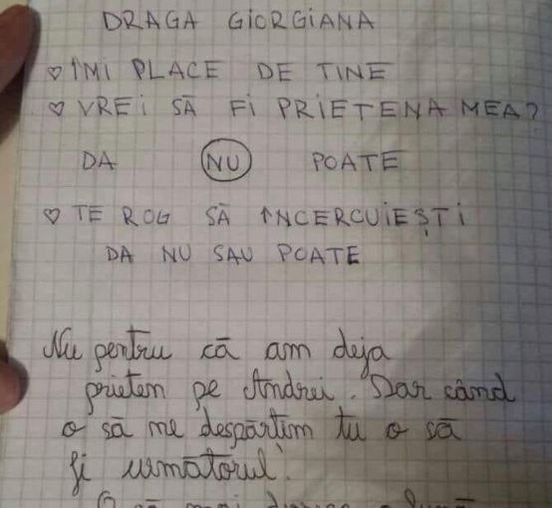 DRAGA GIORGIANA
♡ ÎMI PLACE DE TINE
♡ VREI SĂ FI PRIETENA MEA?
DA NU POATE
♡ TE ROG SĂ ÎNCERCUIEȘTI
DA NU SAU POATE
Nu pentru că am deja
prieten pe Andrei. Dar când
o să ne despărțim tu o să
fi următorul.